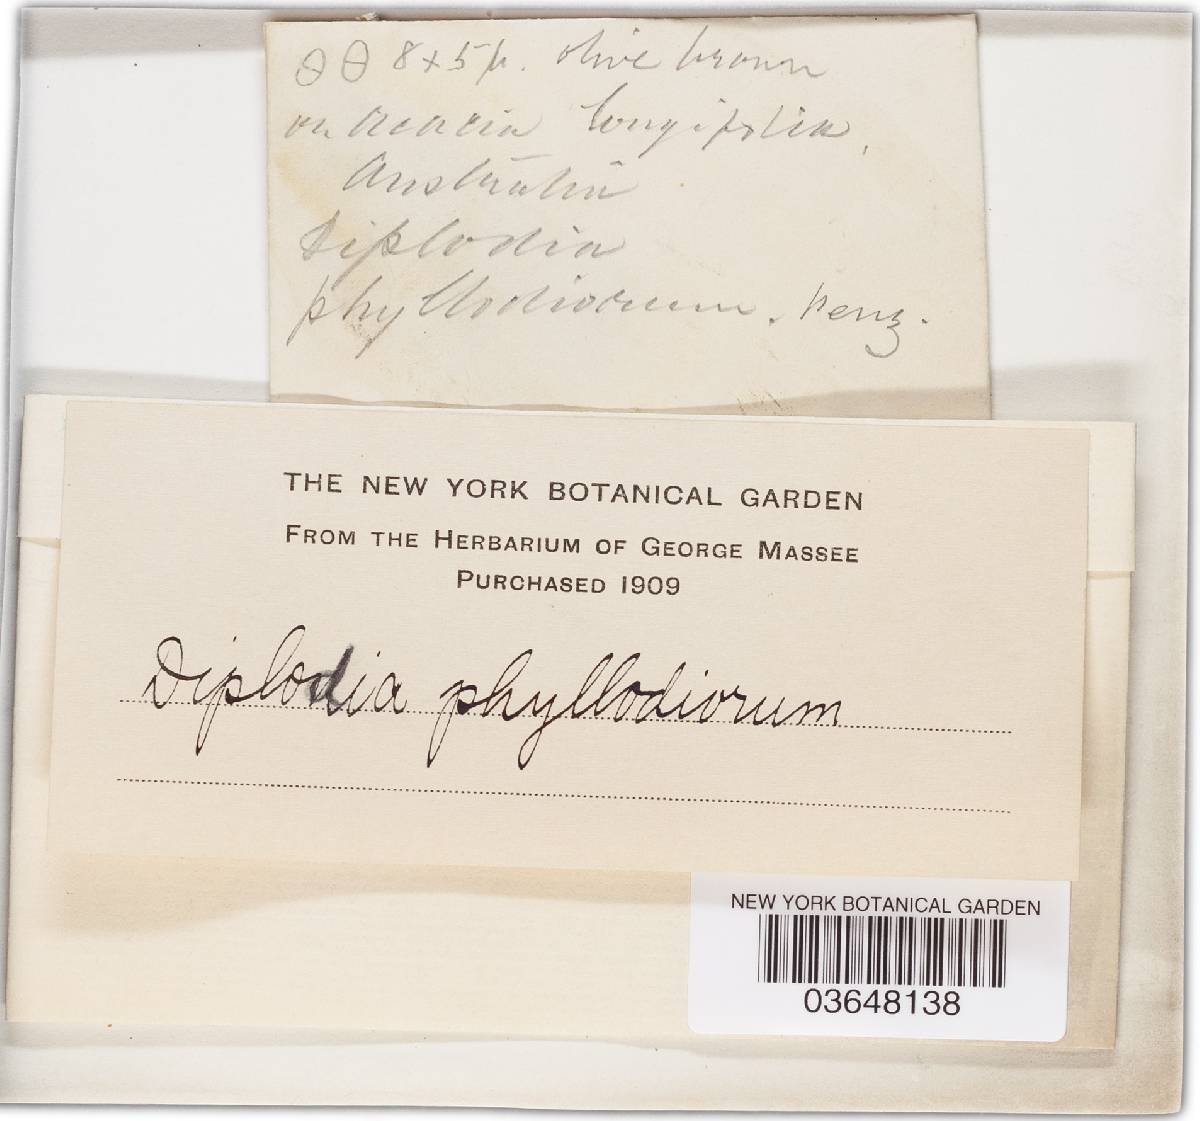 8 x 5 μ. olive brown
on Acacia longifolia,
Australia
Diplodia
phyllodiorum.
THE NEW YORK BOTANICAL GARDEN
FROM THE HERBARIUM OF GEORGE MASSEE
PURCHASED 1909
Diplodia phyllodiorum
NEW YORK BOTANICAL GARDEN
03648138